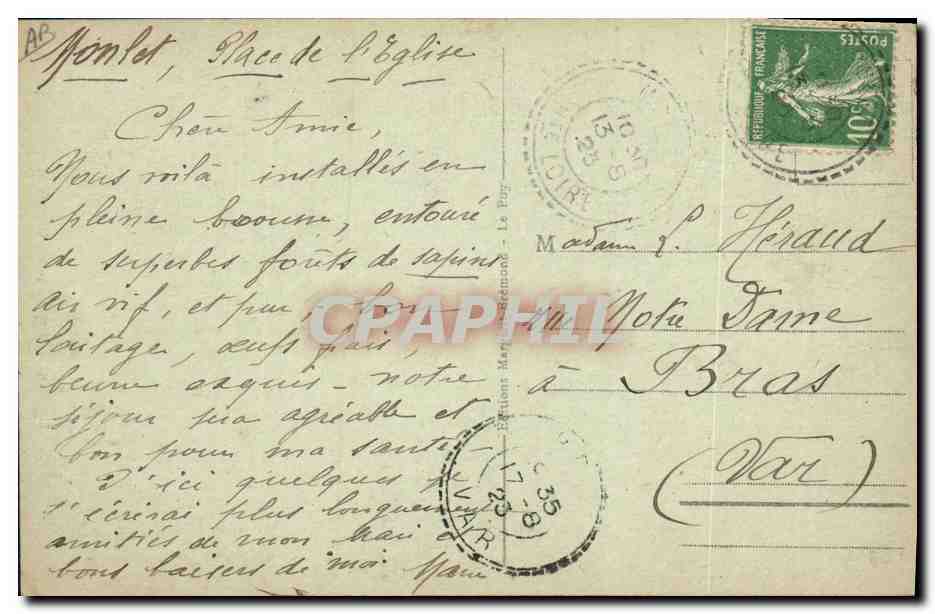 AB
Monlet, Place de l'Eglise
Chère Amie,
Nous voilà installés en
pleine brousse, entouré
de superbes forêts de sapins
air vif, et pur, bon
laitage, œufs frais,
beurre exquis - notre
séjour sera agréable et
bon pour ma santé -
D'ici quelques je
t'écrirai plus longuement
amitiés de mon Mari et
bons baisers de moi Marie
Éditions Brémond - Le Puy
POSTES
REPUBLIQUE FRANÇAISE
10c
10
13 - 8
23
HTE LOIRE
Madame L. Héraud
rue Notre Dame
à Bras
(Var)
35
17 - 8
23
VAR
CPAPHIL